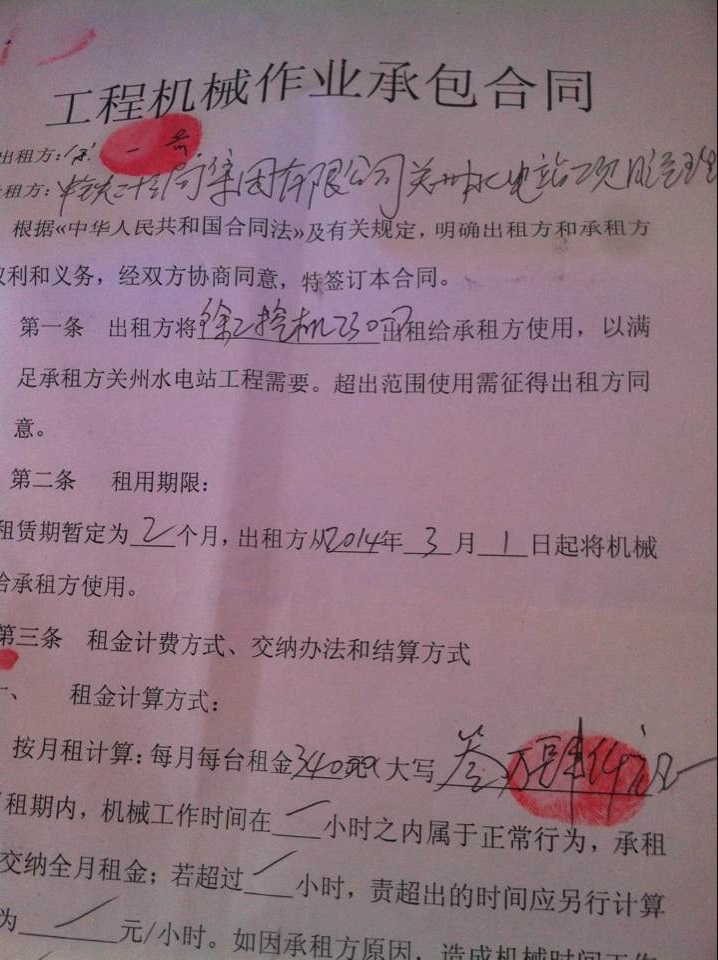 工程机械作业承包合同
出租方:
租方: 中铁二十局集团有限公司关州水电站项目经理
根据«中华人民共和国合同法»及有关规定，明确出租方和承租方
权利和义务，经双方协商同意，特签订本合同。
第一条 出租方将徐工挖机230 出租给承租方使用，以满
足承租方关州水电站工程需要。超出范围使用需征得出租方同
意。
第二条 租用期限：
租赁期暂定为2个月，出租方从2014年3月1日起将机械
给承租方使用。
第三条 租金计费方式、交纳办法和结算方式
一、 租金计算方式：
按月租计算：每月每台租金34000大写叁万肆仟元
租期内，机械工作时间在/小时之内属于正常行为，承租
交纳全月租金；若超过/小时，责超出的时间应另行计算
为/元/小时。如因承租方原因，造成机械时间工作